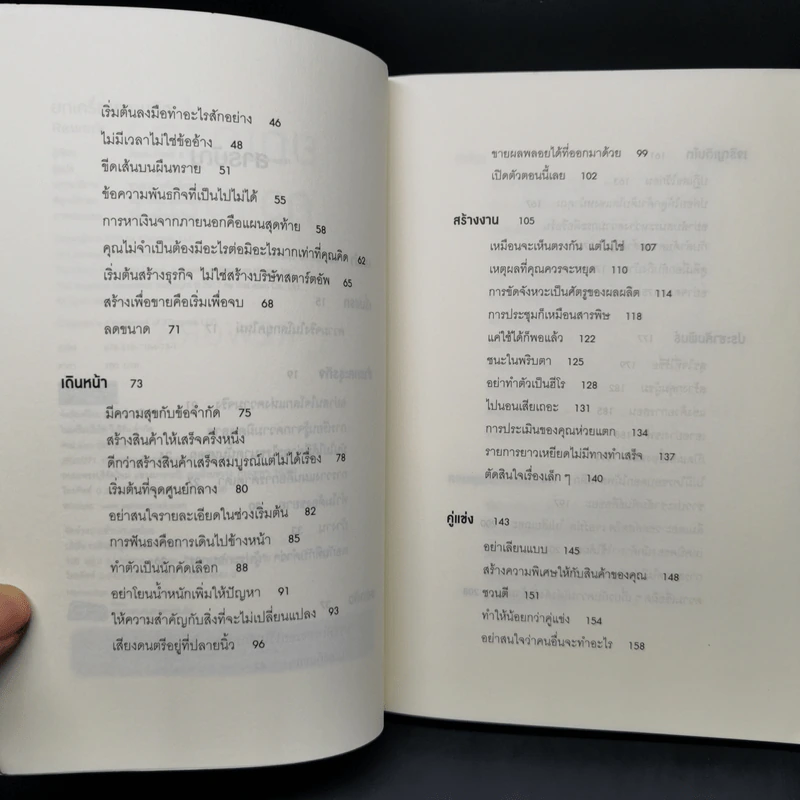 เริ่มต้นลงมือทำอะไรสักอย่าง 46
ไม่มีเวลาไม่ใช่ข้ออ้าง 48
ขีดเส้นบนผืนทราย 51
ข้อความพันธกิจที่เป็นไปไม่ได้ 55
การหาเงินจากภายนอกคือแผนสุดท้าย 58
คุณไม่จำเป็นต้องมีอะไรต่อมิอะไรมากเท่าที่คุณคิด 62
เริ่มต้นสร้างธุรกิจ ไม่ใช่สร้างบริษัทสตาร์ตอัพ 65
สร้างเพื่อขายคือเริ่มเพื่อจบ 68
ลดขนาด 71
เดินหน้า 73
มีความสุขกับข้อจำกัด 75
สร้างสินค้าให้เสร็จครึ่งหนึ่ง
ดีกว่าสร้างสินค้าเสร็จสมบูรณ์แต่ไม่ได้เรื่อง 78
เริ่มต้นที่จุดศูนย์กลาง 80
อย่าสนใจรายละเอียดในช่วงเริ่มต้น 82
การฟันธงคือการเดินไปข้างหน้า 85
ทำตัวเป็นนักคัดเลือก 88
อย่าโยนน้ำหนักเพิ่มให้ปัญหา 91
ให้ความสำคัญกับสิ่งที่จะไม่เปลี่ยนแปลง 93
เสียงดนตรีอยู่ที่ปลายนิ้ว 96
ขายผลพลอยได้ที่ออกมาด้วย 99
เปิดตัวตอนนี้เลย 102
สร้างงาน 105
เหมือนจะเห็นตรงกัน แต่ไม่ใช่ 107
เหตุผลที่คุณควรจะหยุด 110
การขัดจังหวะเป็นศัตรูของผลผลิต 114
การประชุมก็เหมือนสารพิษ 118
แค่ใช้ได้ก็พอแล้ว 122
ชนะในพริบตา 125
อย่าทำตัวเป็นฮีโร่ 128
ไปนอนเสียเถอะ 131
การประเมินของคุณห่วยแตก 134
รายการยาวเหยียดไม่มีทางทำเสร็จ 137
ตัดสินใจเรื่องเล็กๆ 140
คู่แข่ง 143
อย่าเลียนแบบ 145
สร้างความพิเศษให้กับสินค้าของคุณ 148
ชวนตี 151
ทำให้น้อยกว่าคู่แข่ง 154
อย่าสนใจว่าคนอื่นจะทำอะไร 158